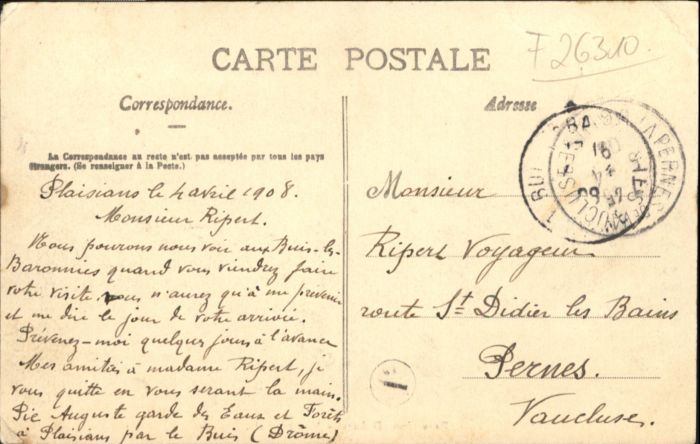 F 26310.
CARTE POSTALE
Correspondance.
Adresse
La Correspondance au recto n'est pas acceptée par tous les pays
étrangers. (Se renseigner à la Poste.)
Plaisians le 4 avril 1908.
Monsieur Ripert.
Nous pourons nous voir aux Buis-les-
Baronnies quand vous viendrez faire
votre visite. Vous n'aurez qu'à me prévenir
et me dire le jour de votre arrivée.
Prévenez-moi quelques jours à l'avance
Mes amitiés à madame Ripert, je
vous quitte en vous serant la main.
Pic Auguste garde des Eaux et Forêts
à Plaisians par le Buis (Drôme)
Monsieur
Ripert Voyageur
route St Didier les Bains
Pernes.
Vaucluse.
PERNES
VAUCLUSE
1